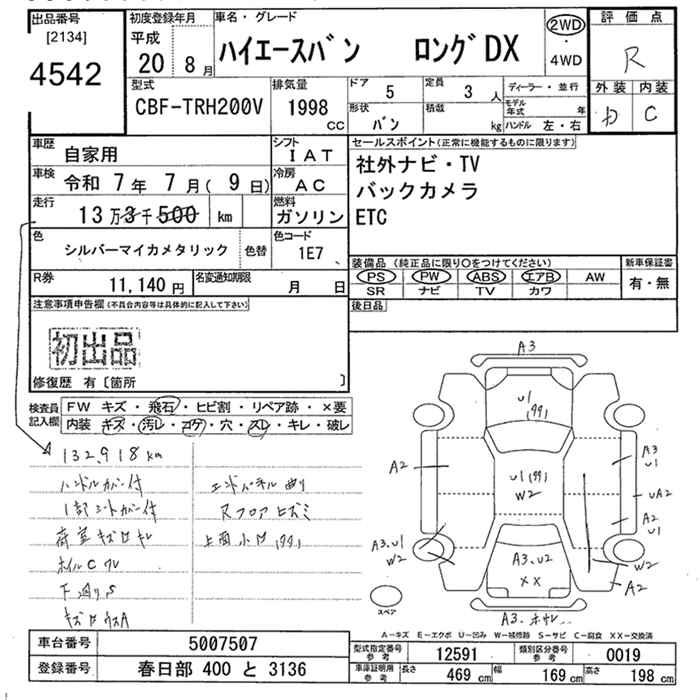 出品番号 [2134] 4542
初度登録年月 平成 20 8月
車名・グレード ハイエースバン ロングDX
2WD ・ 4WD
評価点 R
外装 内装 C
型式 CBF-TRH200V
排気量 1998 CC
ドア 5
定員 3 人
形状 バン
積載 kg
ディーラー・並行
モデル年式 年
ハンドル 左・右
車歴 自家用
シフト IAT
車検 令和 7年 7月( 9日)
冷房 AC
走行 13万3千500 km
燃料 ガソリン
色 シルバーマイカメタリック 色替
色コード 1E7
R券 11,140円
名変通知期限 月 日
セールスポイント(正常に機能するものに限ります)
社外ナビ・TV
バックカメラ
ETC
装備品(純正品に限り〇をつけてください)
新車保証書
PS PW ABS エアB AW 有・無
SR ナビ TV カワ
後日品
注意事項申告欄(不具合内容等は具体的に記入して下さい)
初出品
修復歴 有[箇所 ]
検査員記入欄
FW キズ・飛石・ヒビ割・リペア跡・×要
内装 キズ・汚レ・コゲ・穴・スレ・キレ・破レ
132,918km
ハンドルカバー付
1部シートカバー付
荷室キズ凹キレ
ホイルC
下廻りS
エンドパネル曲り
Rフロアヒズミ
A3
U1 (99)
U1 (99)
W2
A2
A3
U1
UA2
A2
U1
A3.U1
W2
W2
A2
A3.U2
XX
スペア
A-キズ E-エクボ U-凹み W-補修跡 S-サビ C-腐食 XX-交換済
車台番号 5007507
登録番号 春日部 400 と 3136
型式指定番号 参考 12591
類別区分番号 参考 0019
車庫証明用 参考 長さ 469cm 幅 169cm 高さ 198cm